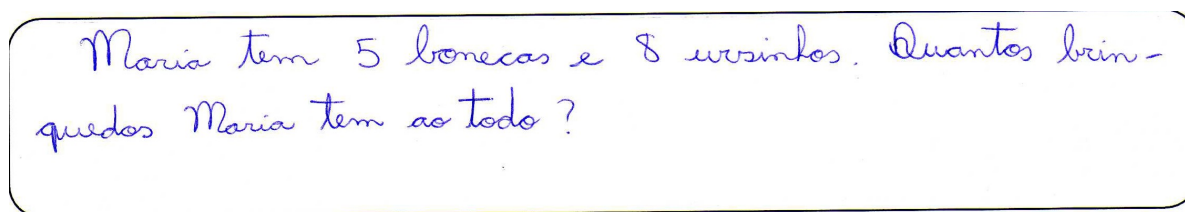 Maria tem 5 bonecas e 8 ursinhos. Quantos brin-
quedos Maria tem ao todo?